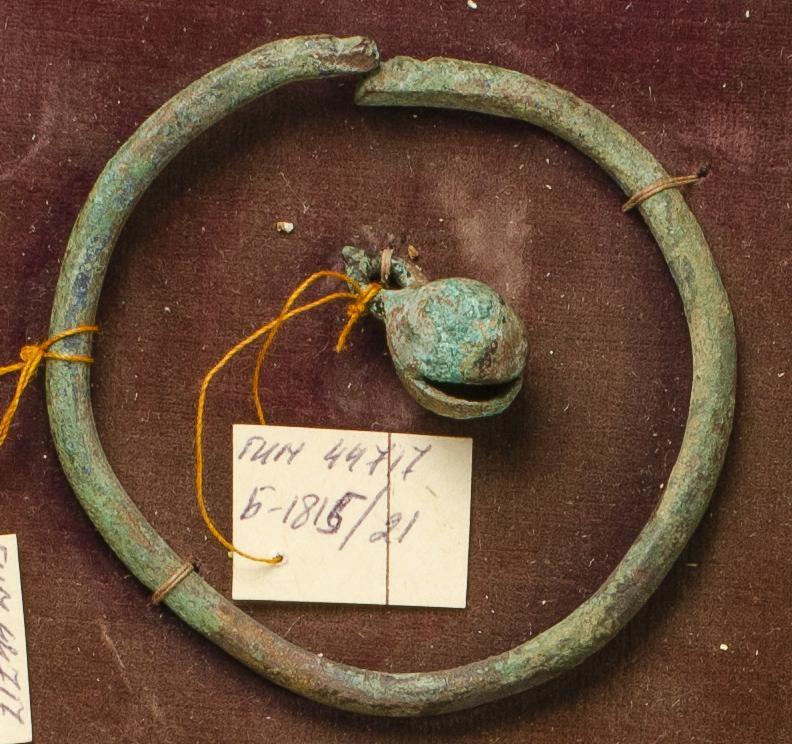 ГИМ 44717
Б-1815/21
ГИМ 44717